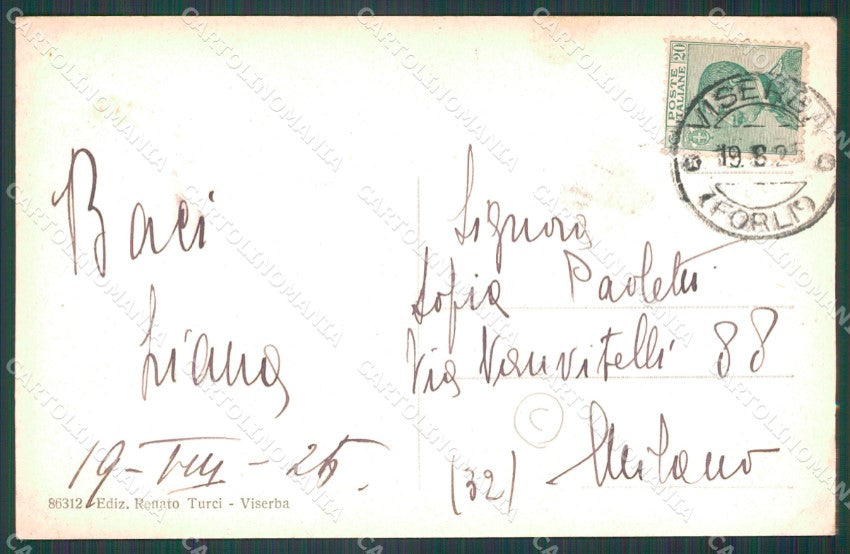 Baci
Liana
19-VIII-26
86312 - Ediz. Renato Turci - Viserba
POSTE ITALIANE 20
VISERBA
19.8.2
(FORLI')
Signora
Sofia Paoletti
Via Vanvitelli 88
(32) Milano
C
CARTOLINOMANIA